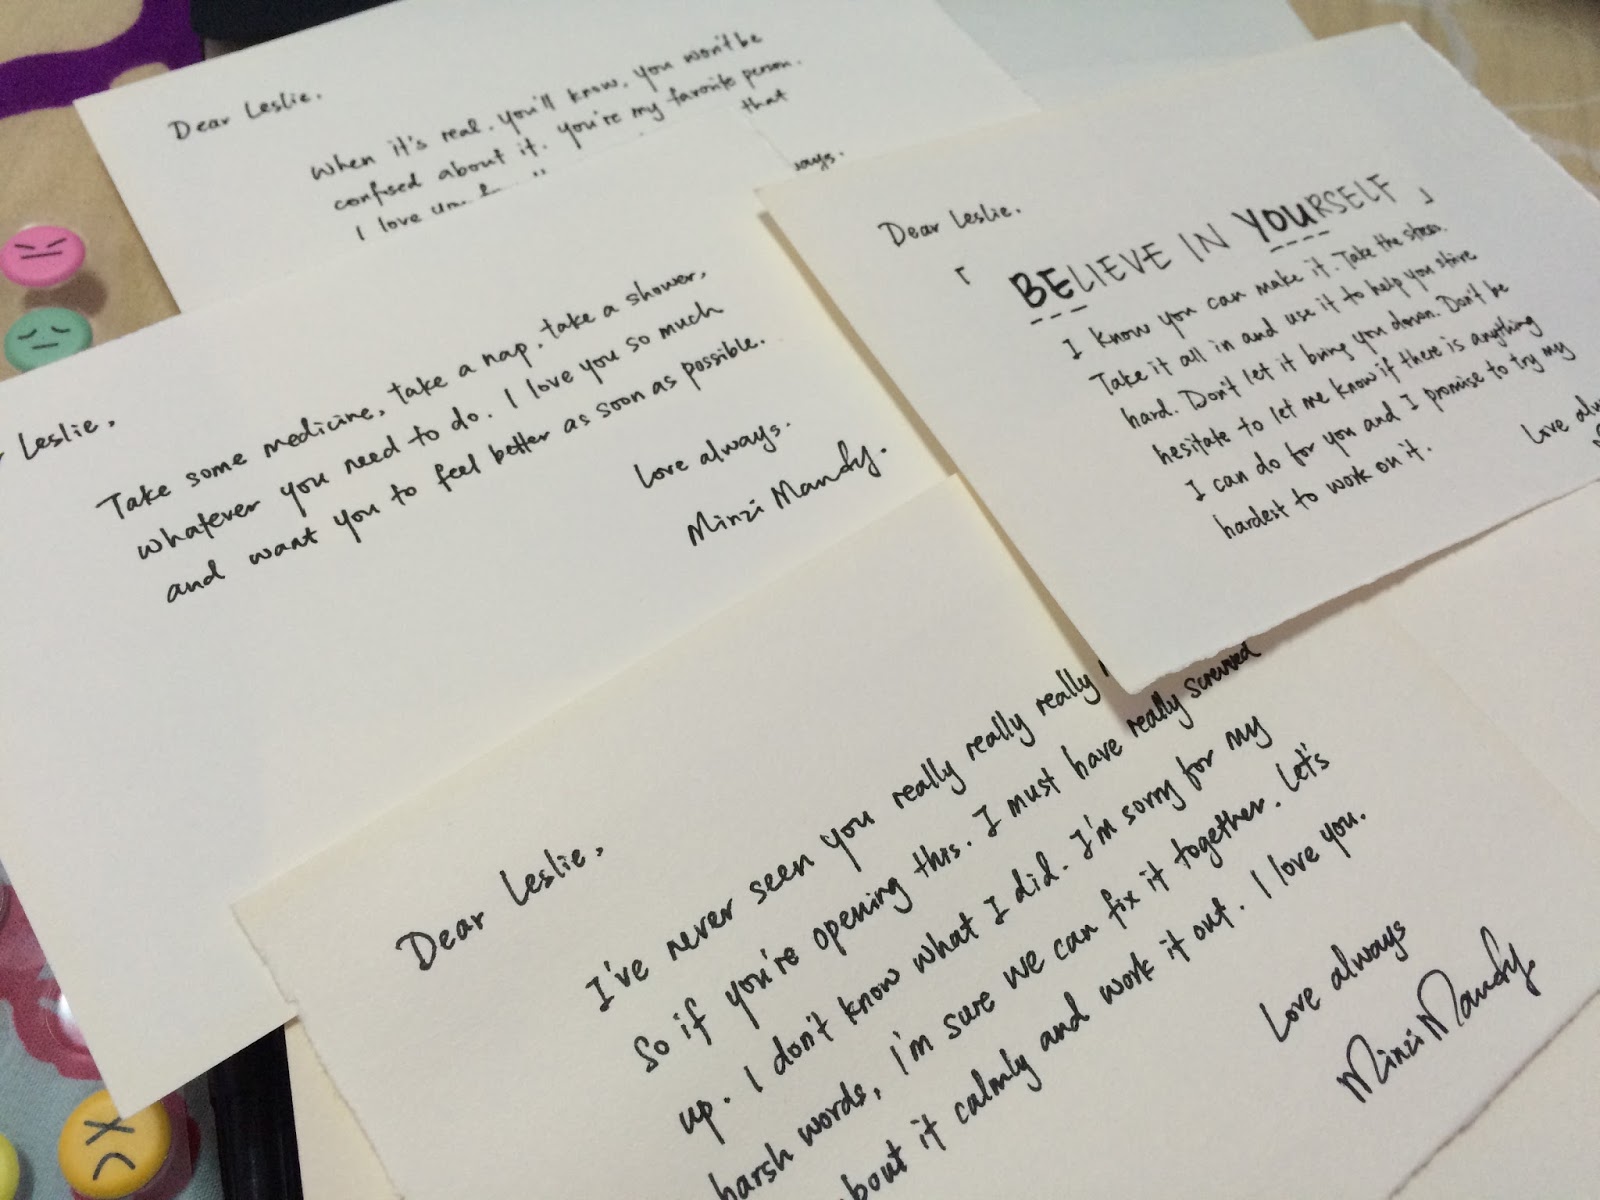 Dear Leslie.
When it's real. you'll know. you won't be
confused about it. You're my favorite person.
I love
that
Leslie,
Take some medicine, take a nap, take a shower,
whatever you need to do. I love you so much
and want you to feel better as soon as possible.
Love always.
Minzi Mandy.
Dear Leslie.
「 BELIEVE IN YOURSELF 」
I know you can make it. Take the stress.
Take it all in and use it to help you strive
hard. Don't let it bring you down. Don't be
hesitate to let me know if there is anything
I can do for you and I promise to try my
hardest to work on it.
Love
Dear Leslie,
I've never seen you really really really
So if you're opening this. I must have really screwed
up. I don't know what I did. I'm sorry for my
harsh words, I'm sure we can fix it together. Let's
about it calmly and work it out. I love you.
Love always
Minzi Mandy.